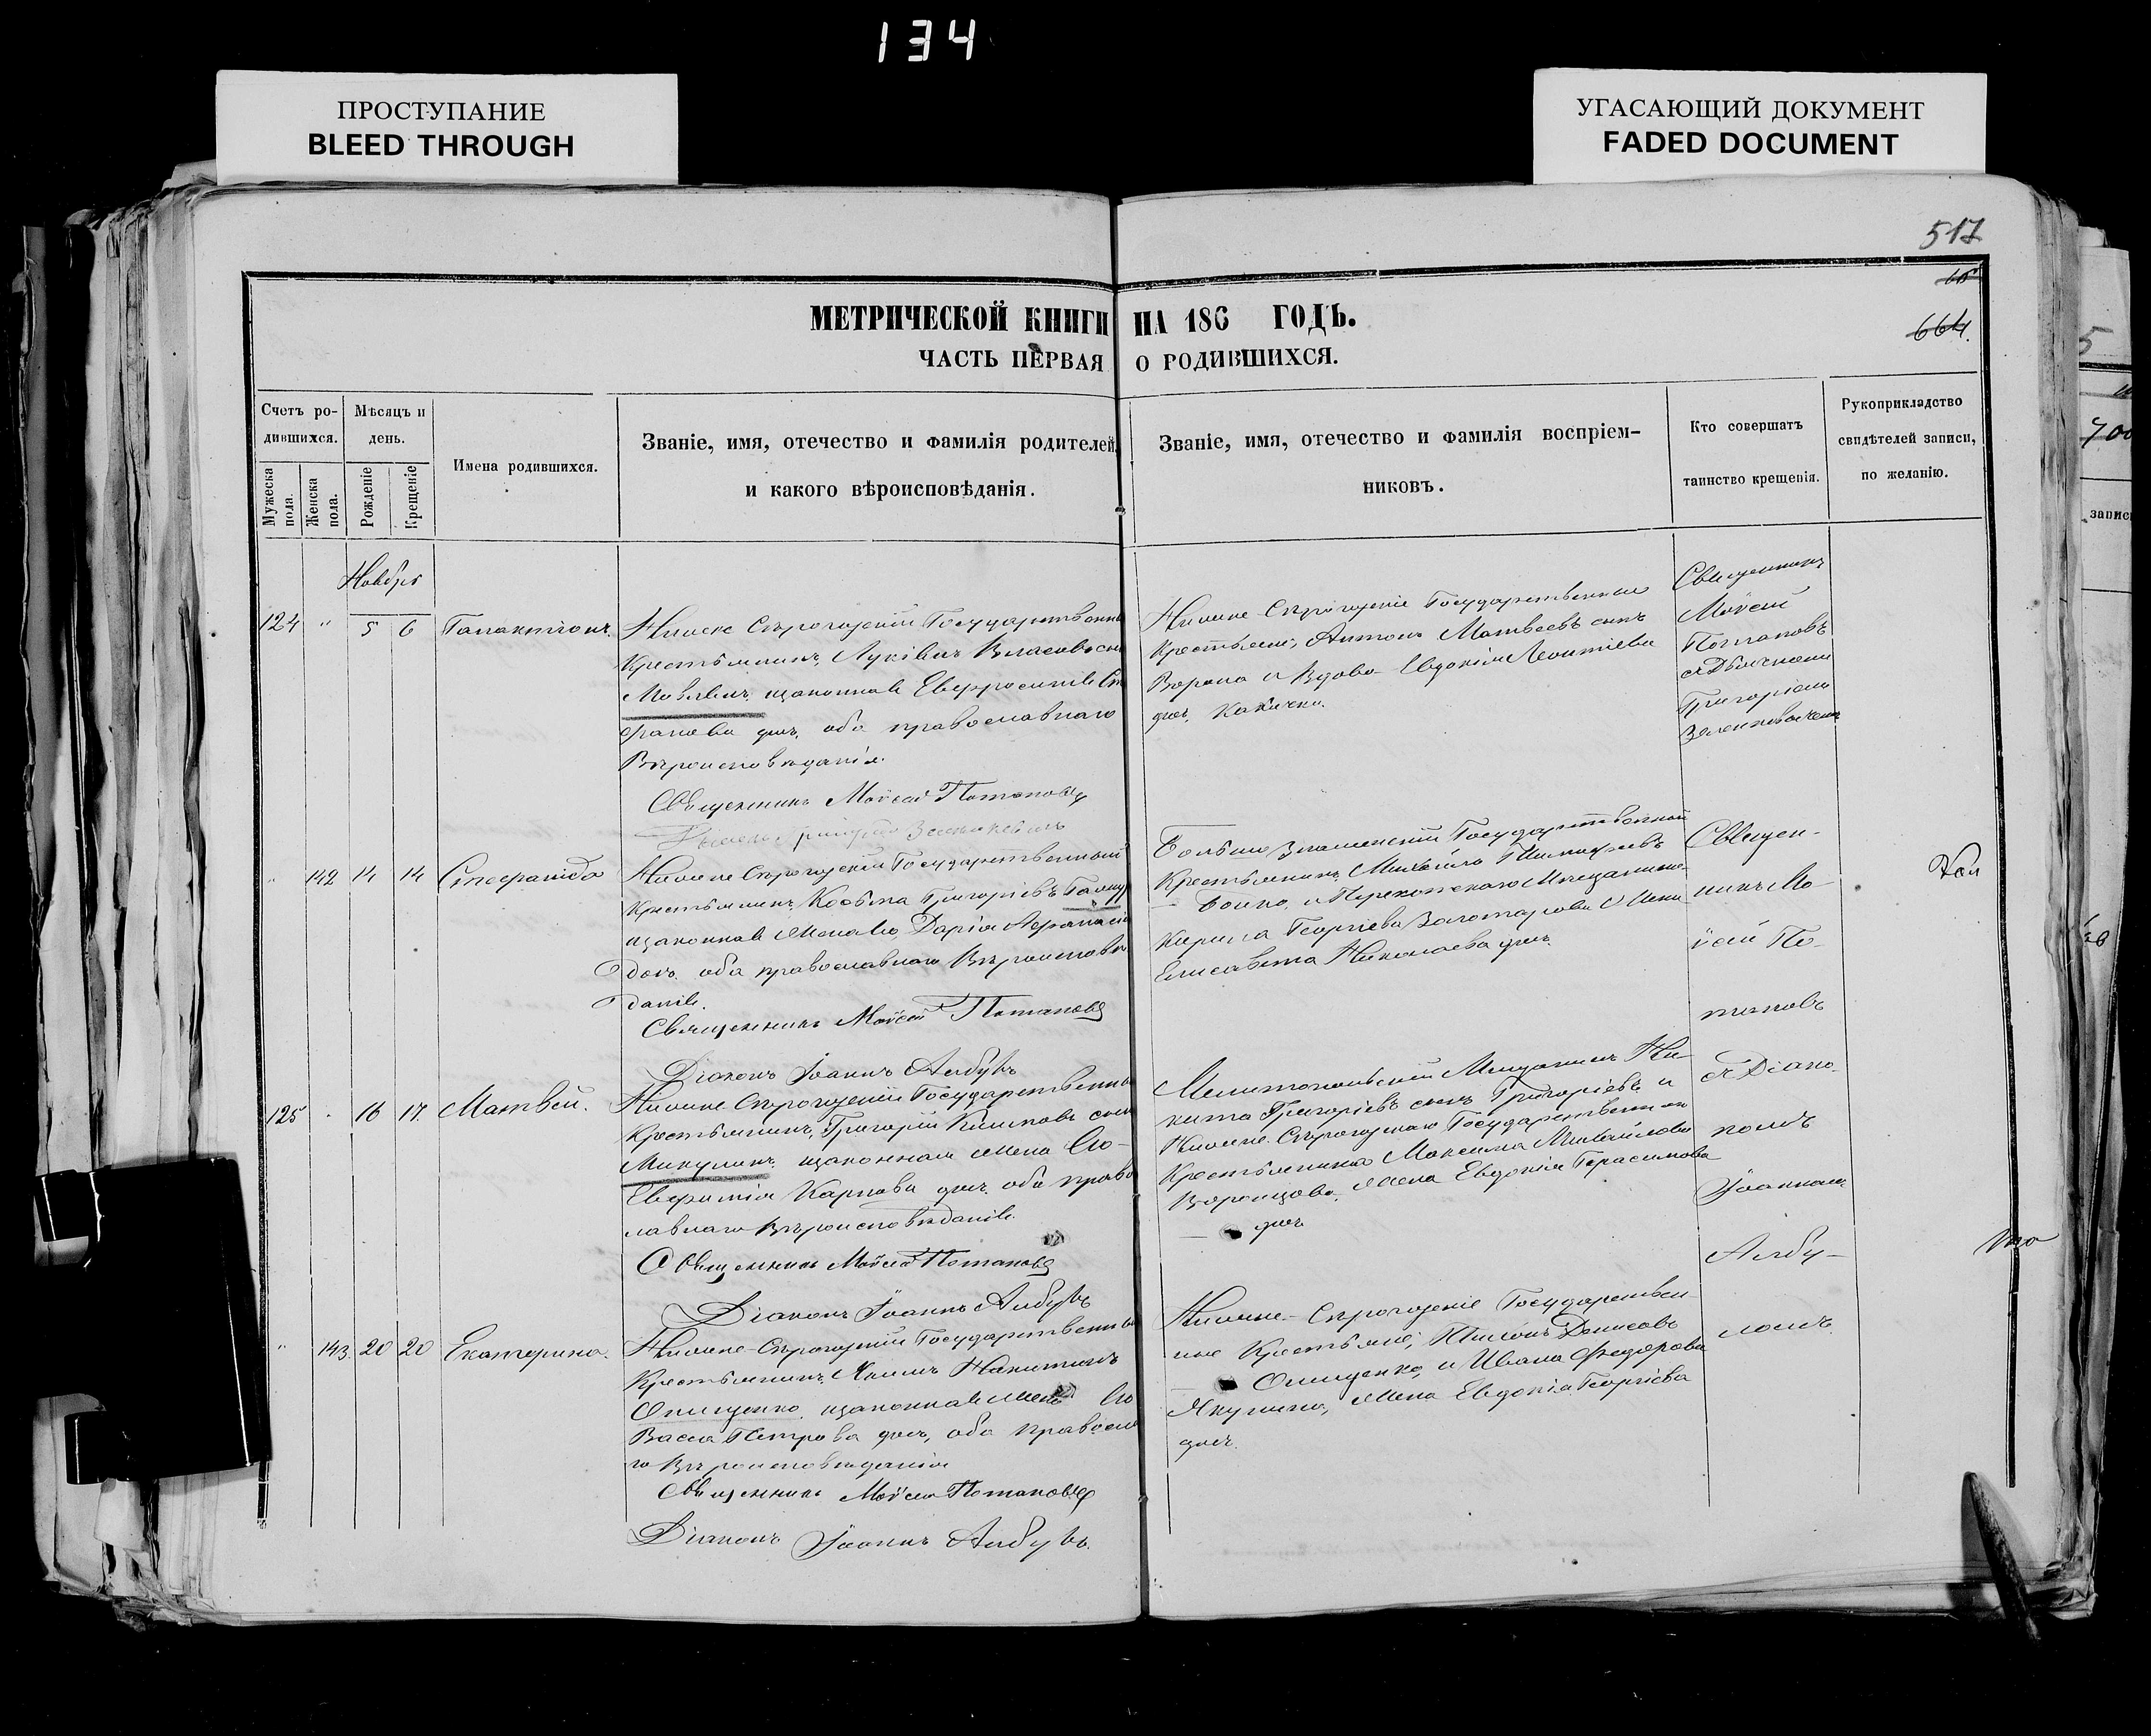 134
ПРОСТУПАНИЕ
BLEED THROUGH
УГАСАЮЩИЙ ДОКУМЕНТ
FADED DOCUMENT
517
664.
МЕТРИЧЕСКОЙ КНИГИ НА 186 ГОДЪ.
ЧАСТЬ ПЕРВАЯ О РОДИВШИХСЯ.
Счетъ ро-
дившихся.
Мужеска
пола.
Женска
пола.
Мѣсяцъ и
день.
Рожденіе
Крещеніе
Имена родившихся.
Званіе, имя, отечество и фамилія родителей,
и какого вѣроисповѣданія.
Званіе, имя, отечество и фамилія воспріем-
никовъ.
Кто совершатъ
таинство крещенія.
Рукоприкладство
свидѣтелей записи,
по желанію.
Ноября
124 " 5 6 Галактіонъ.
Сѣрогозскій Государственный
Крестьянинъ, Власовъ сынъ
законная Евфросинія
фанова доч. оба православнаго
Вѣроисповѣданія.
Священникъ Моисей Потаповъ
Нижне Сѣрогозскіе Государственные
Крестьяне, Антонъ Матвеевъ сынъ
Ворона и Вдова Евдокія Леонтіева
доч.
Священникъ
Моисей
Потаповъ
Григоріемъ
" 142 14 14
Нижне Сѣрогозскій Государственный
Крестьянинъ, Косьма Григорьевъ
законная жена его, Дарія
доч. оба православнаго Вѣроисповѣ
данія.
Священникъ Моисей Потаповъ
Діаконъ Іоаннъ Албулъ
Больше Знаменскій Государственный
Крестьянинъ, Михайло Тимофеевъ
Бойко, и Перекопскаго Мещанина
Кирила Георгіева Золотарева Жена
Елисавета Николаева доч.
Священ-
никъ Мо-
исей По-
таповъ
съ Діако-
номъ
Іоанномъ
Албу-
ломъ.
125 16 17. Матвей.
Нижне Сѣрогозскій Государственный
Крестьянинъ, Григорій Климовъ сынъ
Микулинъ, законная жена его
Евфимія Карпова доч. оба право
славнаго Вѣроисповѣданія.
Священникъ Моисей Потаповъ
Діаконъ Іоаннъ Албулъ
Мелитопольскій Мещанинъ Ни-
кита Григорьевъ сынъ Григорьевъ и
Нижне-Сѣрогозскаго Государственнаго
Крестьянина Максима Михайлова
Воронцова, жена Евдокія Герасимова
доч.
" 143 20 20 Екатерина.
Нижне-Сѣрогозскій Государственный
Крестьянинъ, Никитинъ
Онищенко, законная жена его
Васса Петрова доч, оба православна
го Вѣроисповѣданія
Священникъ Моисей Потаповъ
Діаконъ Іоаннъ Албулъ.
Нижне-Сѣрогозскіе Государствен-
ные Крестьяне, Денисовъ
Онищенко, и Ивана Федорова
Якунина, жена Евдокія Георгіева
доч.